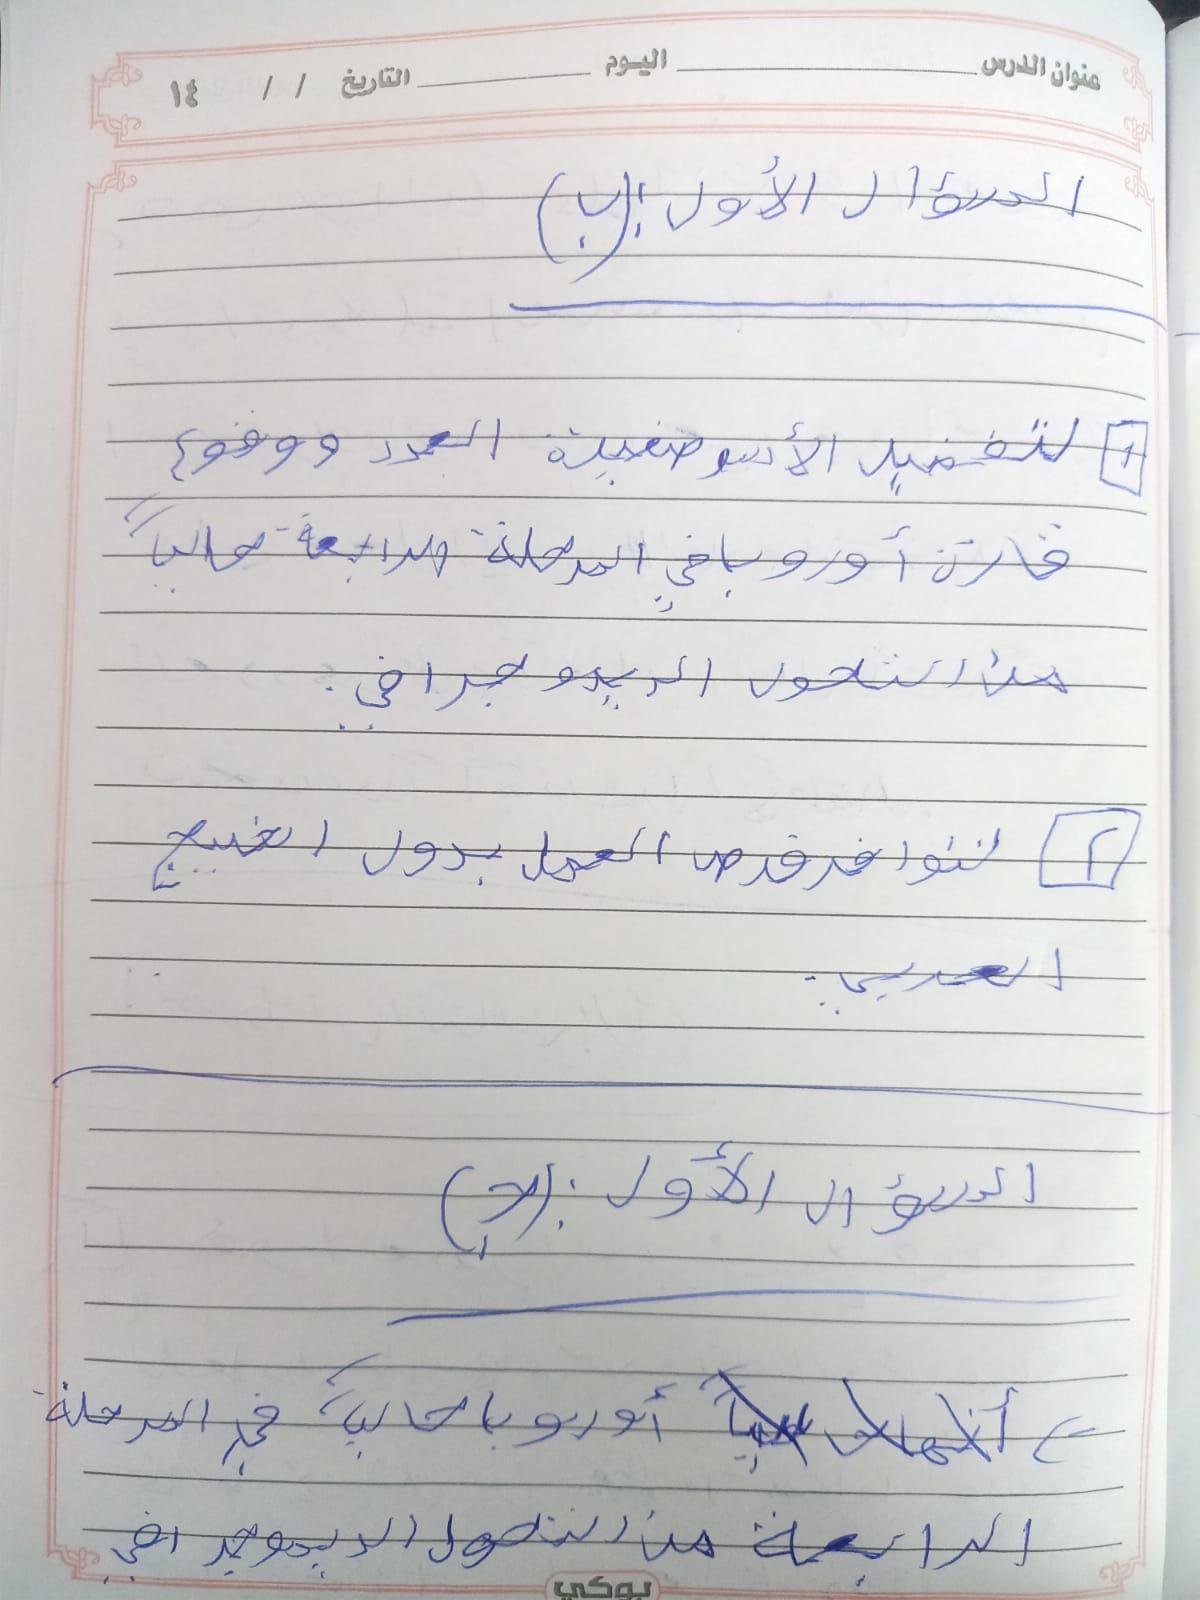 عنوان الدرس اليوم التاريخ / / ١٤
السؤال الأول :(ب)
١ لتفضيل الأسر صغيرة العدد ووقوع
قارة أوروبا في المرحلة الرابعة حالياً
من التحول الديموجرافي .
٢ لتوافر فرص العمل بدول الخليج
العربي .
السؤال الأول :(ج)
أوروبا حالياً في المرحلة
الرابعة من التحول الديموجرافي
بوكي